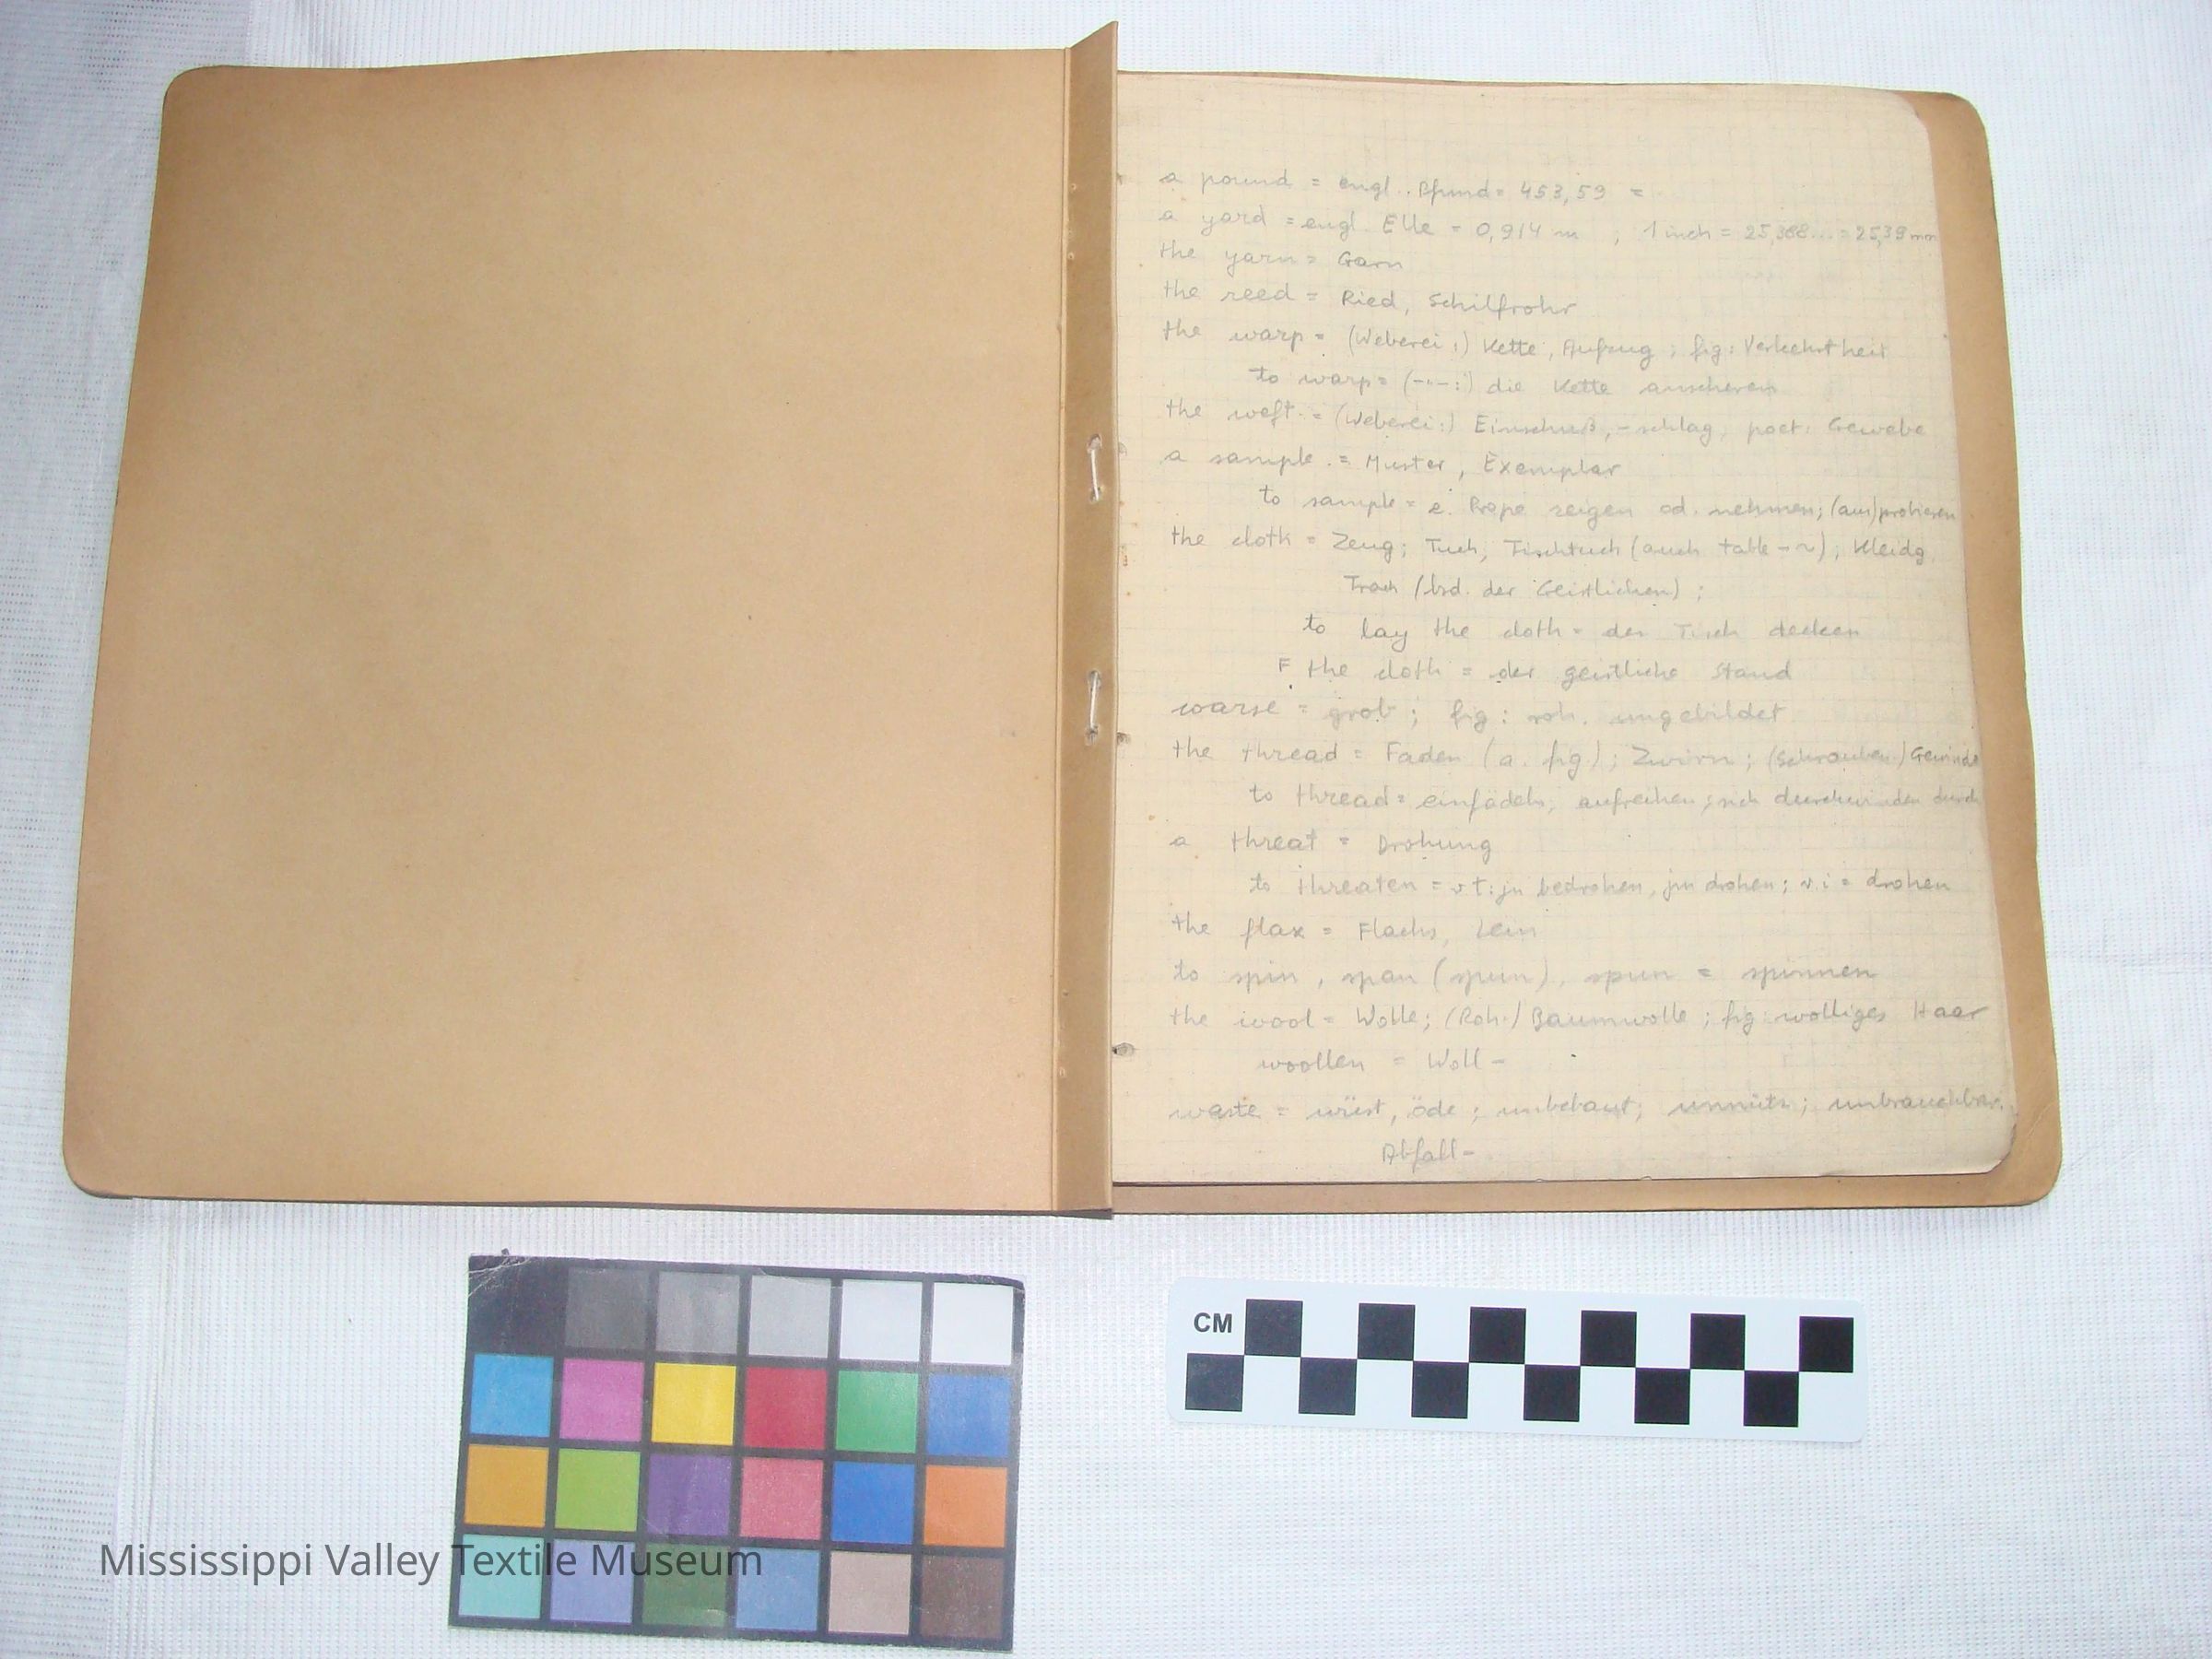 a pound = engl. Pfund = 453,59 =
a yard = engl. Elle = 0,914 m ; 1 inch = 25,388... = 25,39 mm
the yarn = Garn
the reed = Ried, Schilfrohr
the warp = (Weberei:) Kette, Aufzug ; fig: Verkehrtheit
to warp = (-"-:) die Kette anscheren
the weft = (Weberei:) Einschuß, -schlag, poet: Gewebe
a sample = Muster, Exemplar
to sample = e. Probe zeigen od. nehmen; (aus)probieren
the cloth = Zeug; Tuch, Tischtuch (auch table-~); Kleidg.
(bsd. der Geistlichen) ;
to lay the cloth = den Tisch decken
F the cloth = der geistliche Stand
coarse = grob ; fig: roh. ungebildet
the thread = Faden (a. fig) ; Zwirn ; (Schrauben) Gewinde
to thread = einfädeln, aufreihen; sich durchwinden durch
a threat = Drohung
to threaten = v.t: jn bedrohen, jm drohen; v.i = drohen
the flax = Flachs, Lein
to spin, span (spun), spun = spinnen
the wool = Wolle; (Roh-) Baumwolle ; fig: wolliges Haar
woollen = Woll-
waste = wüst, öde ; unbebaut; unnütz; unbrauchbar.
Abfall-
CM
Mississippi Valley Textile Museum